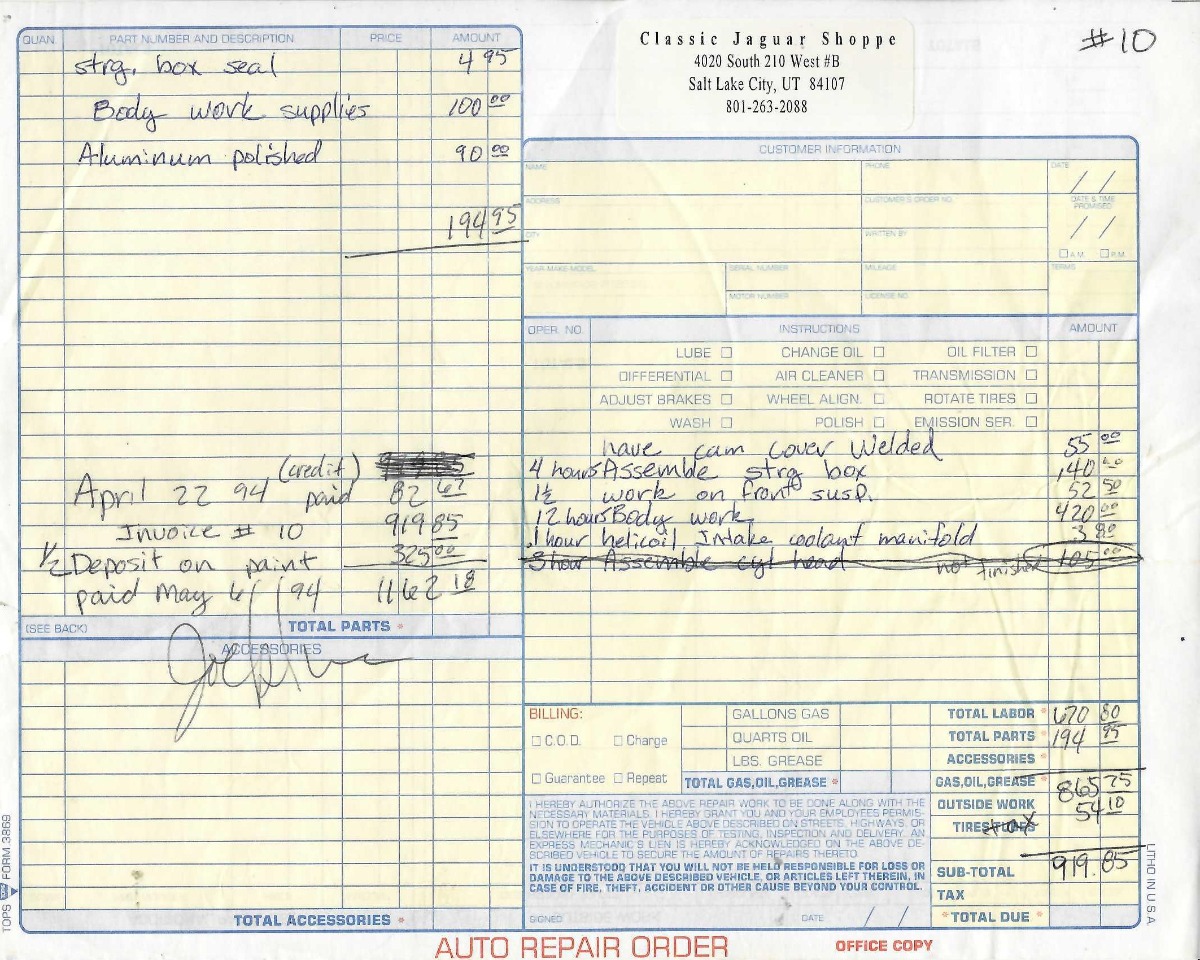 Classic Jaguar Shoppe
4020 South 210 West #B
Salt Lake City, UT 84107
801-263-2088
#10
QUAN. PART NUMBER AND DESCRIPTION PRICE AMOUNT
strg. box seal 4 95
Body work supplies 100 00
Aluminum polished 90 00
194 95
(credit)
April 22 94 paid 82 67
Invoice # 10 919 85
1/2 Deposit on paint 325 00
paid May 6/94 1162 18
(SEE BACK) TOTAL PARTS *
ACCESSORIES
TOTAL ACCESSORIES *
CUSTOMER INFORMATION
NAME PHONE DATE
/ /
ADDRESS CUSTOMER'S ORDER NO. DATE & TIME PROMISED
/ /
CITY WRITTEN BY
☐ A.M. ☐ P.M.
YEAR-MAKE-MODEL SERIAL NUMBER MILEAGE TERMS
MOTOR NUMBER LICENSE NO.
OPER. NO. INSTRUCTIONS AMOUNT
LUBE ☐ CHANGE OIL ☐ OIL FILTER ☐
DIFFERENTIAL ☐ AIR CLEANER ☐ TRANSMISSION ☐
ADJUST BRAKES ☐ WHEEL ALIGN. ☐ ROTATE TIRES ☐
WASH ☐ POLISH ☐ EMISSION SER. ☐
have cam cover welded 55 00
4 hours Assemble strg box 140 00
1½ work on front susp. 52 50
12 hours Body work 420 00
.1 hour helicoil Intake coolant manifold 3 80
3 hour Assemble cyl head not finished 105 00
BILLING:
☐ C.O.D. ☐ Charge
☐ Guarantee ☐ Repeat
GALLONS GAS
QUARTS OIL
LBS. GREASE
TOTAL GAS,OIL,GREASE *
TOTAL LABOR * 670 80
TOTAL PARTS * 194 95
ACCESSORIES *
GAS,OIL,GREASE * 865 75
OUTSIDE WORK 54 10
TIRES-TUBES tax
SUB-TOTAL 919.85
TAX
* TOTAL DUE *
I HEREBY AUTHORIZE THE ABOVE REPAIR WORK TO BE DONE ALONG WITH THE
NECESSARY MATERIALS. I HEREBY GRANT YOU AND YOUR EMPLOYEES PERMIS-
SION TO OPERATE THE VEHICLE ABOVE DESCRIBED ON STREETS, HIGHWAYS, OR
ELSEWHERE FOR THE PURPOSES OF TESTING, INSPECTION AND DELIVERY. AN
EXPRESS MECHANIC'S LIEN IS HEREBY ACKNOWLEDGED ON THE ABOVE DE-
SCRIBED VEHICLE TO SECURE THE AMOUNT OF REPAIRS THERETO.
IT IS UNDERSTOOD THAT YOU WILL NOT BE HELD RESPONSIBLE FOR LOSS OR
DAMAGE TO THE ABOVE DESCRIBED VEHICLE, OR ARTICLES LEFT THEREIN, IN
CASE OF FIRE, THEFT, ACCIDENT OR OTHER CAUSE BEYOND YOUR CONTROL.
SIGNED DATE / /
TOPS FORM 3869
LITHO IN U.S.A.
AUTO REPAIR ORDER OFFICE COPY